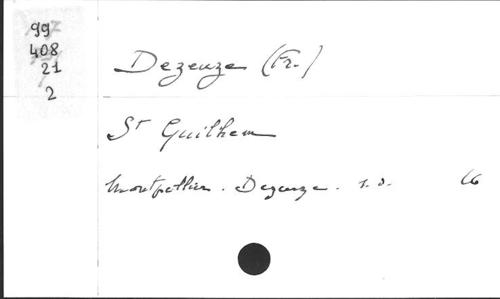 99
408
21
2
Dezeuze (Fr.)
St Guilhem
Montpellier. Dezeuze. s.d.